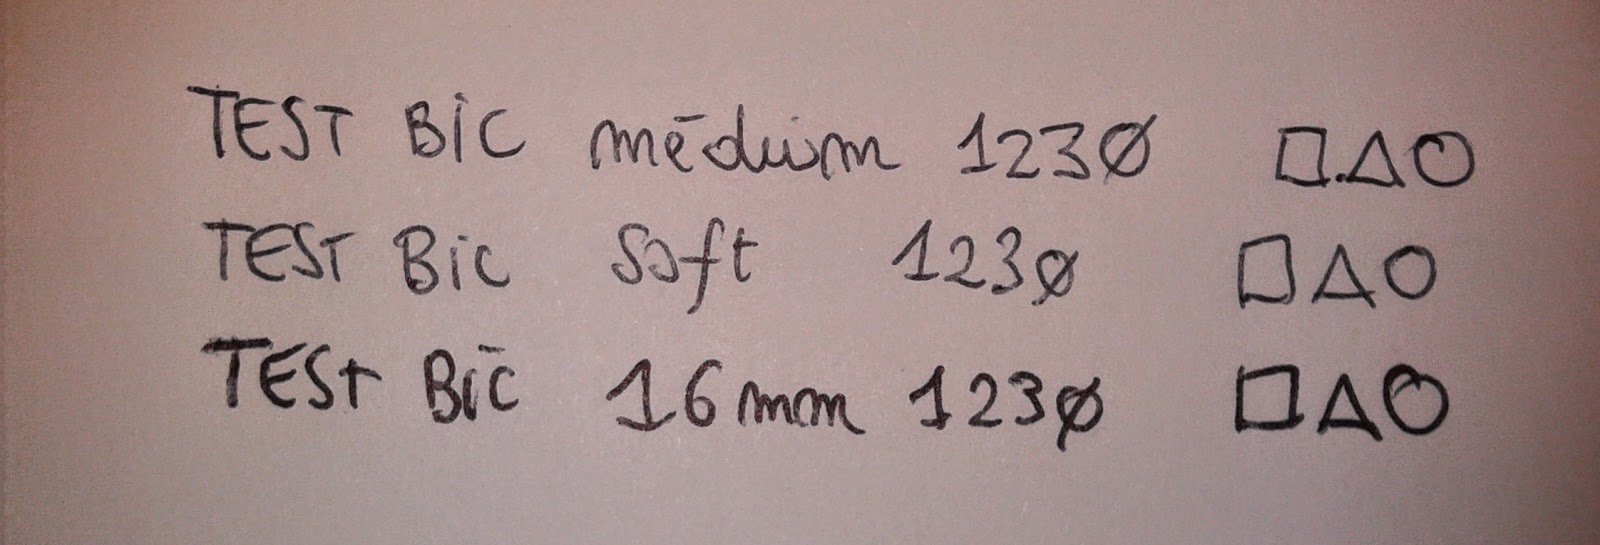 TEST BIC médium 123Ø □.△○
TEST BIC soft 123Ø □△○
TEST BIC 16mm 123Ø □△○